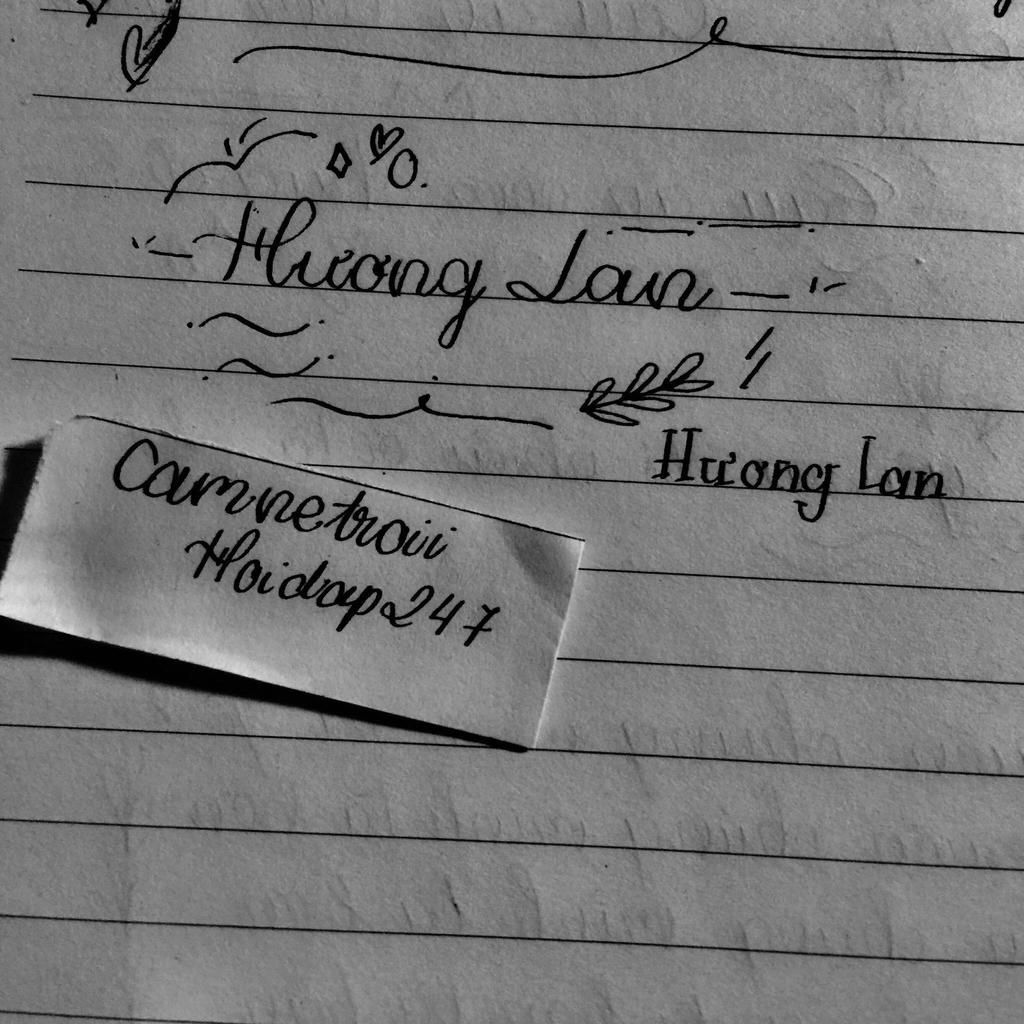 Hương Lan
Hương Lan
Camnetroii
Hoidap247